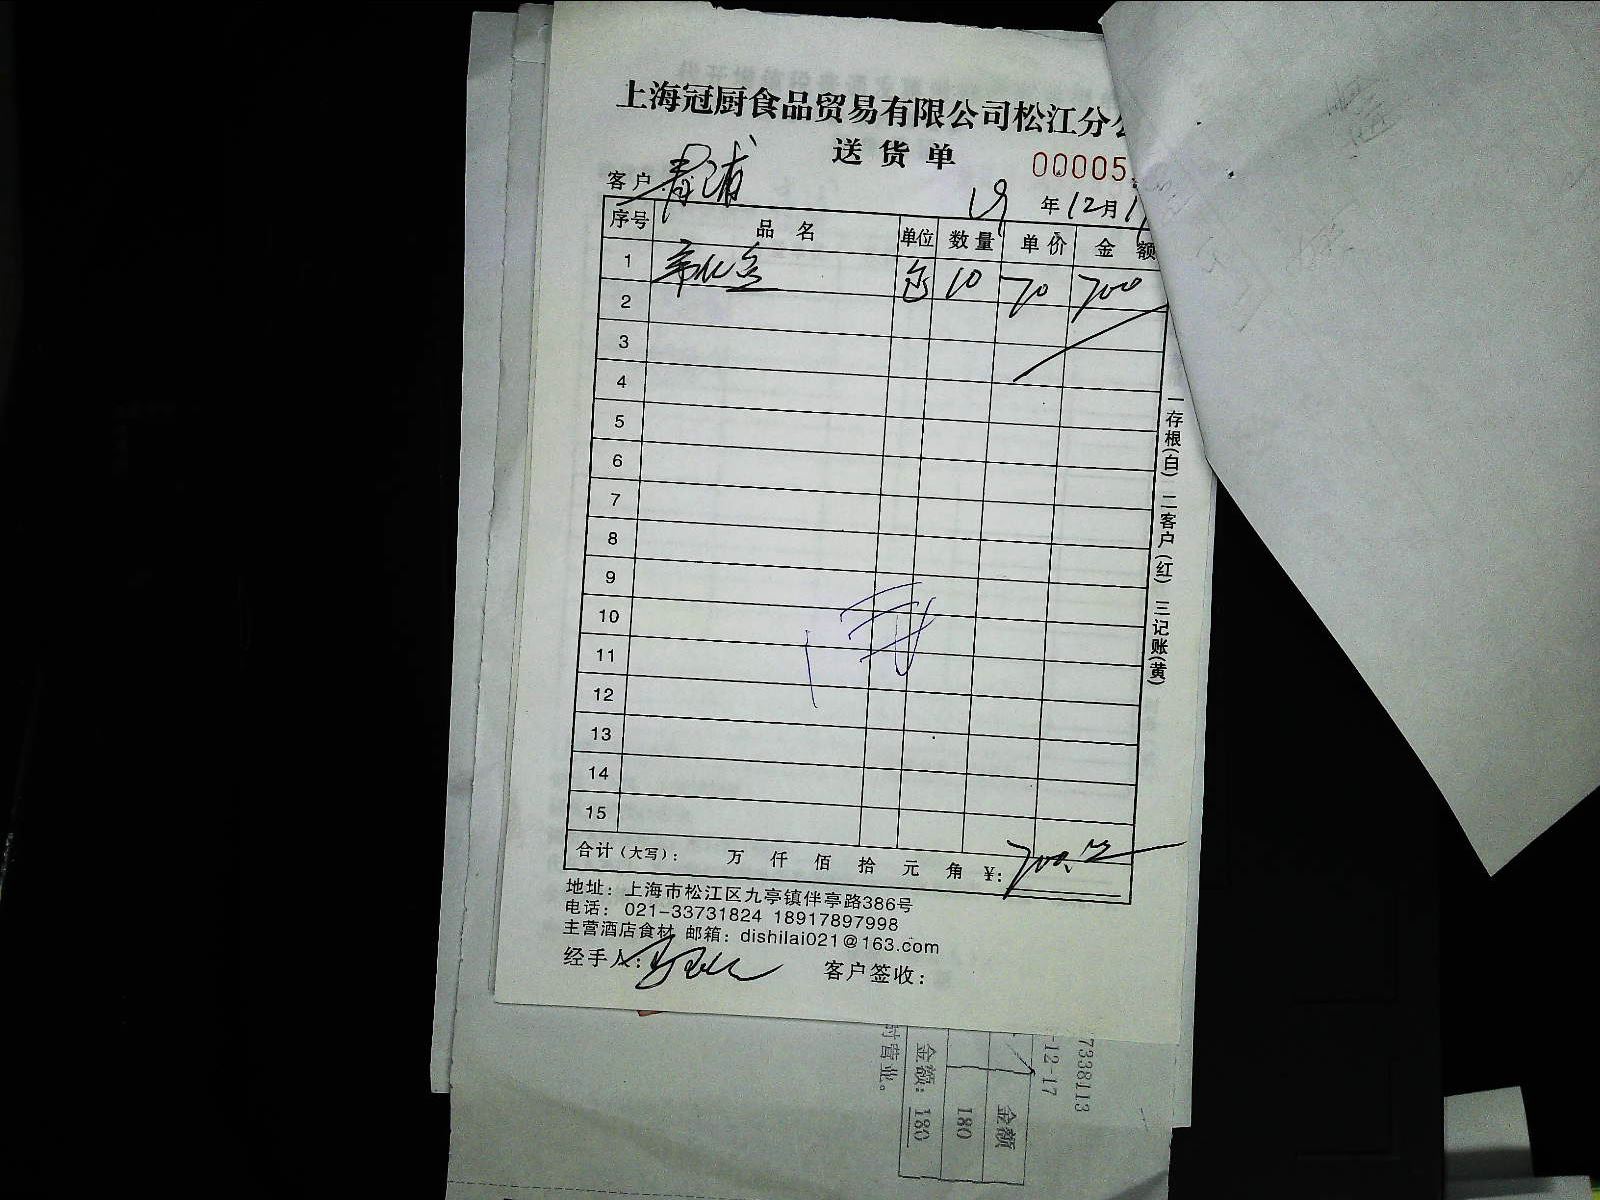 上海冠厨食品贸易有限公司松江分公
送货单 00005
客户 青浦 19年12月1
序号 品名 单位 数量 单价 金额
1 包 10 70 700
2
3
4
5
6
7
8
9
10
11
12
13
14
15
合计(大写): 万 仟 佰 拾 元 角 ¥: 700.
地址: 上海市松江区九亭镇伴亭路386号
电话: 021-33731824 18917897998
主营酒店食材 邮箱: dishilai021@163.com
经手人: 客户签收:
一存根(白) 二客户(红) 三记账(黄)
7338113
-12-17
金额
180
金额: 180
时营业。